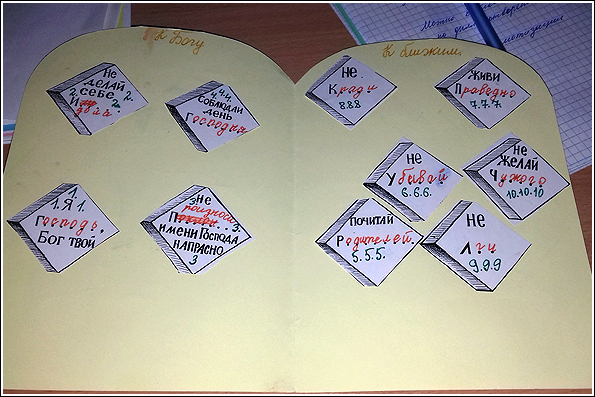 К Богу
Не
делай
2. себе 2.
И 2.
дола
4.4.4.
Соблюдай
день
Господа
1.
1. Я 1.
Господь,
Бог твой
3 Не
произноси
имени Господа 3.
напрасно
3
К ближним
Не
Кради
8.8.8
Живи
Праведно
7.7.7.
Не
Убивай
6.6.6.
Не
желай
Чужого
10.10.10
Почитай
Родителей.
5.5.5.
Не
Лги
9.9.9